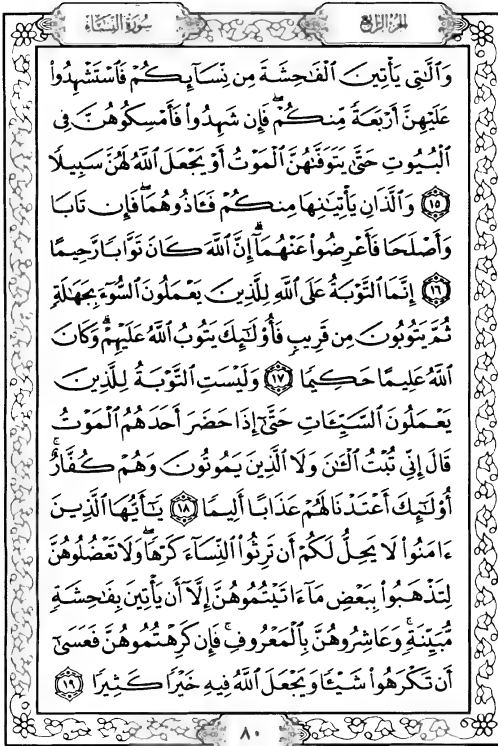 سُورَةُ النِّسَاءِ الجزءُ الرَّابِعُ
وَٱلَّٰتِي يَأْتِينَ ٱلْفَٰحِشَةَ مِن نِّسَآئِكُمْ فَٱسْتَشْهِدُوا۟
عَلَيْهِنَّ أَرْبَعَةً مِّنكُمْ ۖ فَإِن شَهِدُوا۟ فَأَمْسِكُوهُنَّ فِى
ٱلْبُيُوتِ حَتَّىٰ يَتَوَفَّىٰهُنَّ ٱلْمَوْتُ أَوْ يَجْعَلَ ٱللَّهُ لَهُنَّ سَبِيلًا
١٥ وَٱلَّذَانِ يَأْتِيَٰنِهَا مِنكُمْ فَـَٔاذُوهُمَا ۖ فَإِن تَابَا
وَأَصْلَحَا فَأَعْرِضُوا۟ عَنْهُمَآ ۗ إِنَّ ٱللَّهَ كَانَ تَوَّابًا رَّحِيمًا
١٦ إِنَّمَا ٱلتَّوْبَةُ عَلَى ٱللَّهِ لِلَّذِينَ يَعْمَلُونَ ٱلسُّوٓءَ بِجَهَٰلَةٍ
ثُمَّ يَتُوبُونَ مِن قَرِيبٍ فَأُو۟لَٰٓئِكَ يَتُوبُ ٱللَّهُ عَلَيْهِمْ ۗ وَكَانَ
ٱللَّهُ عَلِيمًا حَكِيمًا ١٧ وَلَيْسَتِ ٱلتَّوْبَةُ لِلَّذِينَ
يَعْمَلُونَ ٱلسَّيِّـَٔاتِ حَتَّىٰٓ إِذَا حَضَرَ أَحَدَهُمُ ٱلْمَوْتُ
قَالَ إِنِّى تُبْتُ ٱلْـَٰٔنَ وَلَا ٱلَّذِينَ يَمُوتُونَ وَهُمْ كُفَّارٌ ۚ
أُو۟لَٰٓئِكَ أَعْتَدْنَا لَهُمْ عَذَابًا أَلِيمًا ١٨ يَٰٓأَيُّهَا ٱلَّذِينَ
ءَامَنُوا۟ لَا يَحِلُّ لَكُمْ أَن تَرِثُوا۟ ٱلنِّسَآءَ كَرْهًا ۖ وَلَا تَعْضُلُوهُنَّ
لِتَذْهَبُوا۟ بِبَعْضِ مَآ ءَاتَيْتُمُوهُنَّ إِلَّآ أَن يَأْتِينَ بِفَٰحِشَةٍ
مُّبَيِّنَةٍ ۚ وَعَاشِرُوهُنَّ بِٱلْمَعْرُوفِ ۚ فَإِن كَرِهْتُمُوهُنَّ فَعَسَىٰٓ
أَن تَكْرَهُوا۟ شَيْـًٔا وَيَجْعَلَ ٱللَّهُ فِيهِ خَيْرًا كَثِيرًا ١٩
٨٠